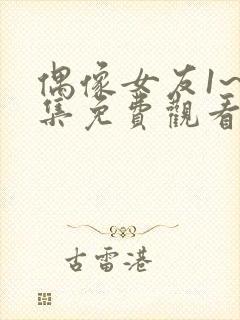 偶像女友1~
集免費觀看
古雷港